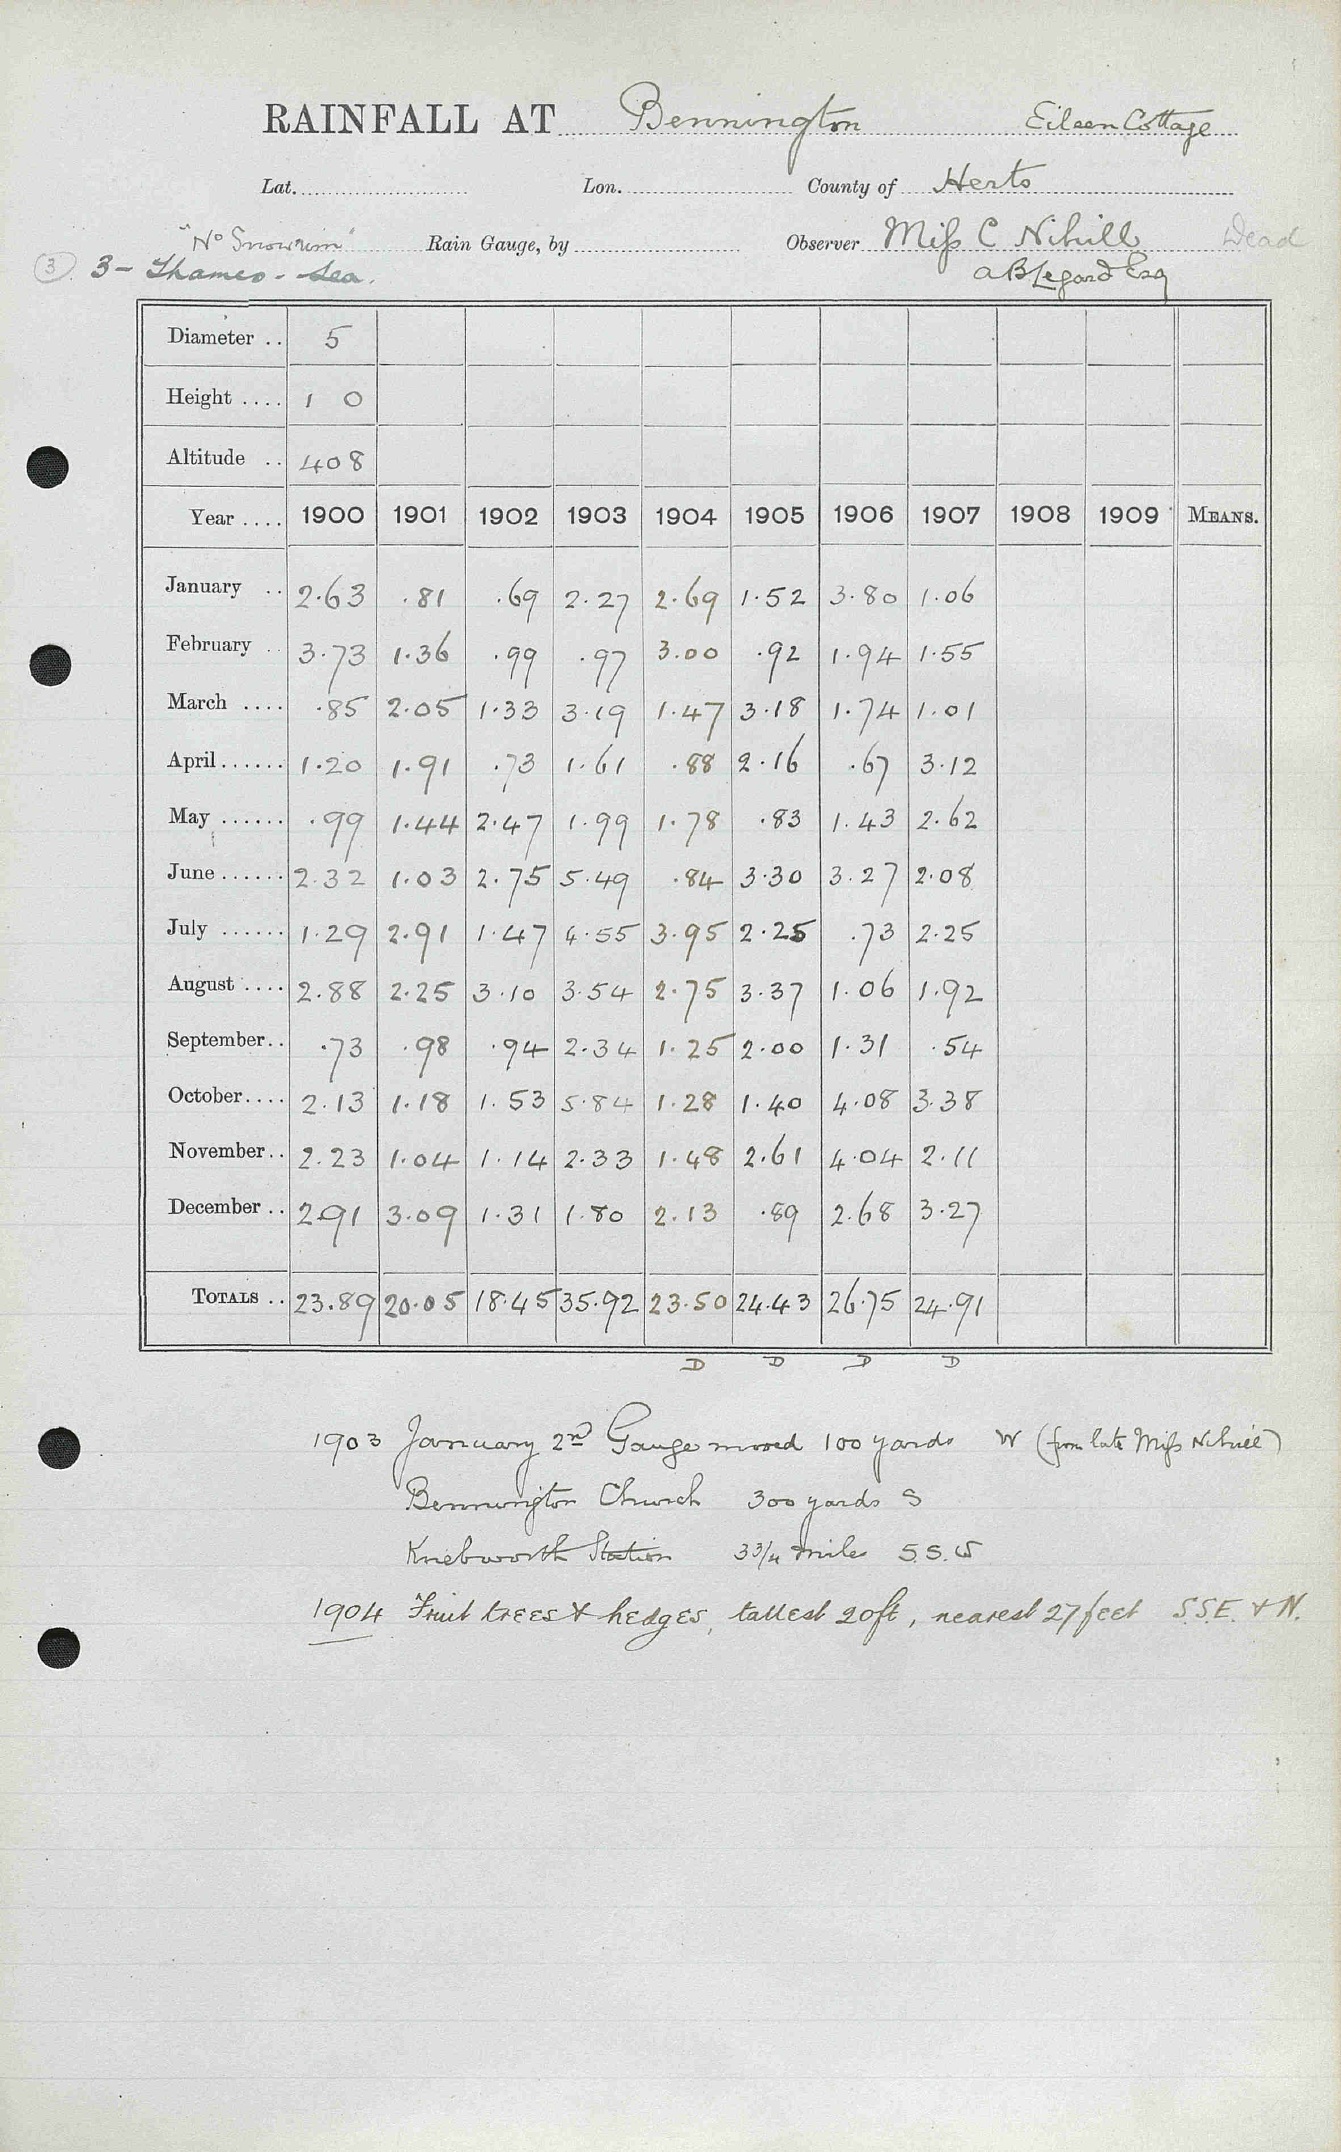 RAINFALL AT Bennington Eileen Cottage
Lat. Lon. County of Herts
"No Snowrim" Rain Gauge, by Observer Miss C Nihill Dead
(3) 3 - Thames - Sea. A B Legard Esq
Diameter .. 5
Height .... 1 0
Altitude .. 408
Year .... 1900 1901 1902 1903 1904 1905 1906 1907 1908 1909 MEANS.
January .. 2.63 .81 .69 2.27 2.69 1.52 3.80 1.06
February .. 3.73 1.36 .99 .97 3.00 .92 1.94 1.55
March .... .85 2.05 1.33 3.19 1.47 3.18 1.74 1.01
April ...... 1.20 1.91 .73 1.61 .88 2.16 .67 3.12
May ...... .99 1.44 2.47 1.99 1.78 .83 1.43 2.62
June ...... 2.32 1.03 2.75 5.49 .84 3.30 3.27 2.08
July ...... 1.29 2.91 1.47 4.55 3.95 2.25 .73 2.25
August .... 2.88 2.25 3.10 3.54 2.75 3.37 1.06 1.92
September.. .73 .98 .94 2.34 1.25 2.00 1.31 .54
October.... 2.13 1.18 1.53 5.84 1.28 1.40 4.08 3.38
November.. 2.23 1.04 1.14 2.33 1.48 2.61 4.04 2.11
December .. 2.91 3.09 1.31 1.80 2.13 .89 2.68 3.27
TOTALS .. 23.89 20.05 18.45 35.92 23.50 24.43 26.75 24.91
D D D D
1903 January 2nd Gauge moved 100 yards W (from late Miss Nihill)
Bennington Church 300 yards S
Knebworth Station 3 3/4 miles S.S.W
1904 Fruit trees & hedges, tallest 20ft, nearest 27 feet S.S.E. & N.